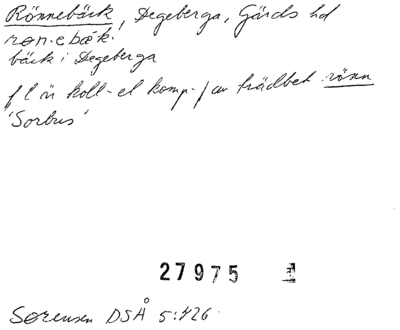 Rönnebäck, Degeberga, Gärds hd
rønebæk.
bäck i Degeberga
fl är koll- el komp- av trädbet rönn
'Sorbus'
27975
Sørensen DSÅ 5:426